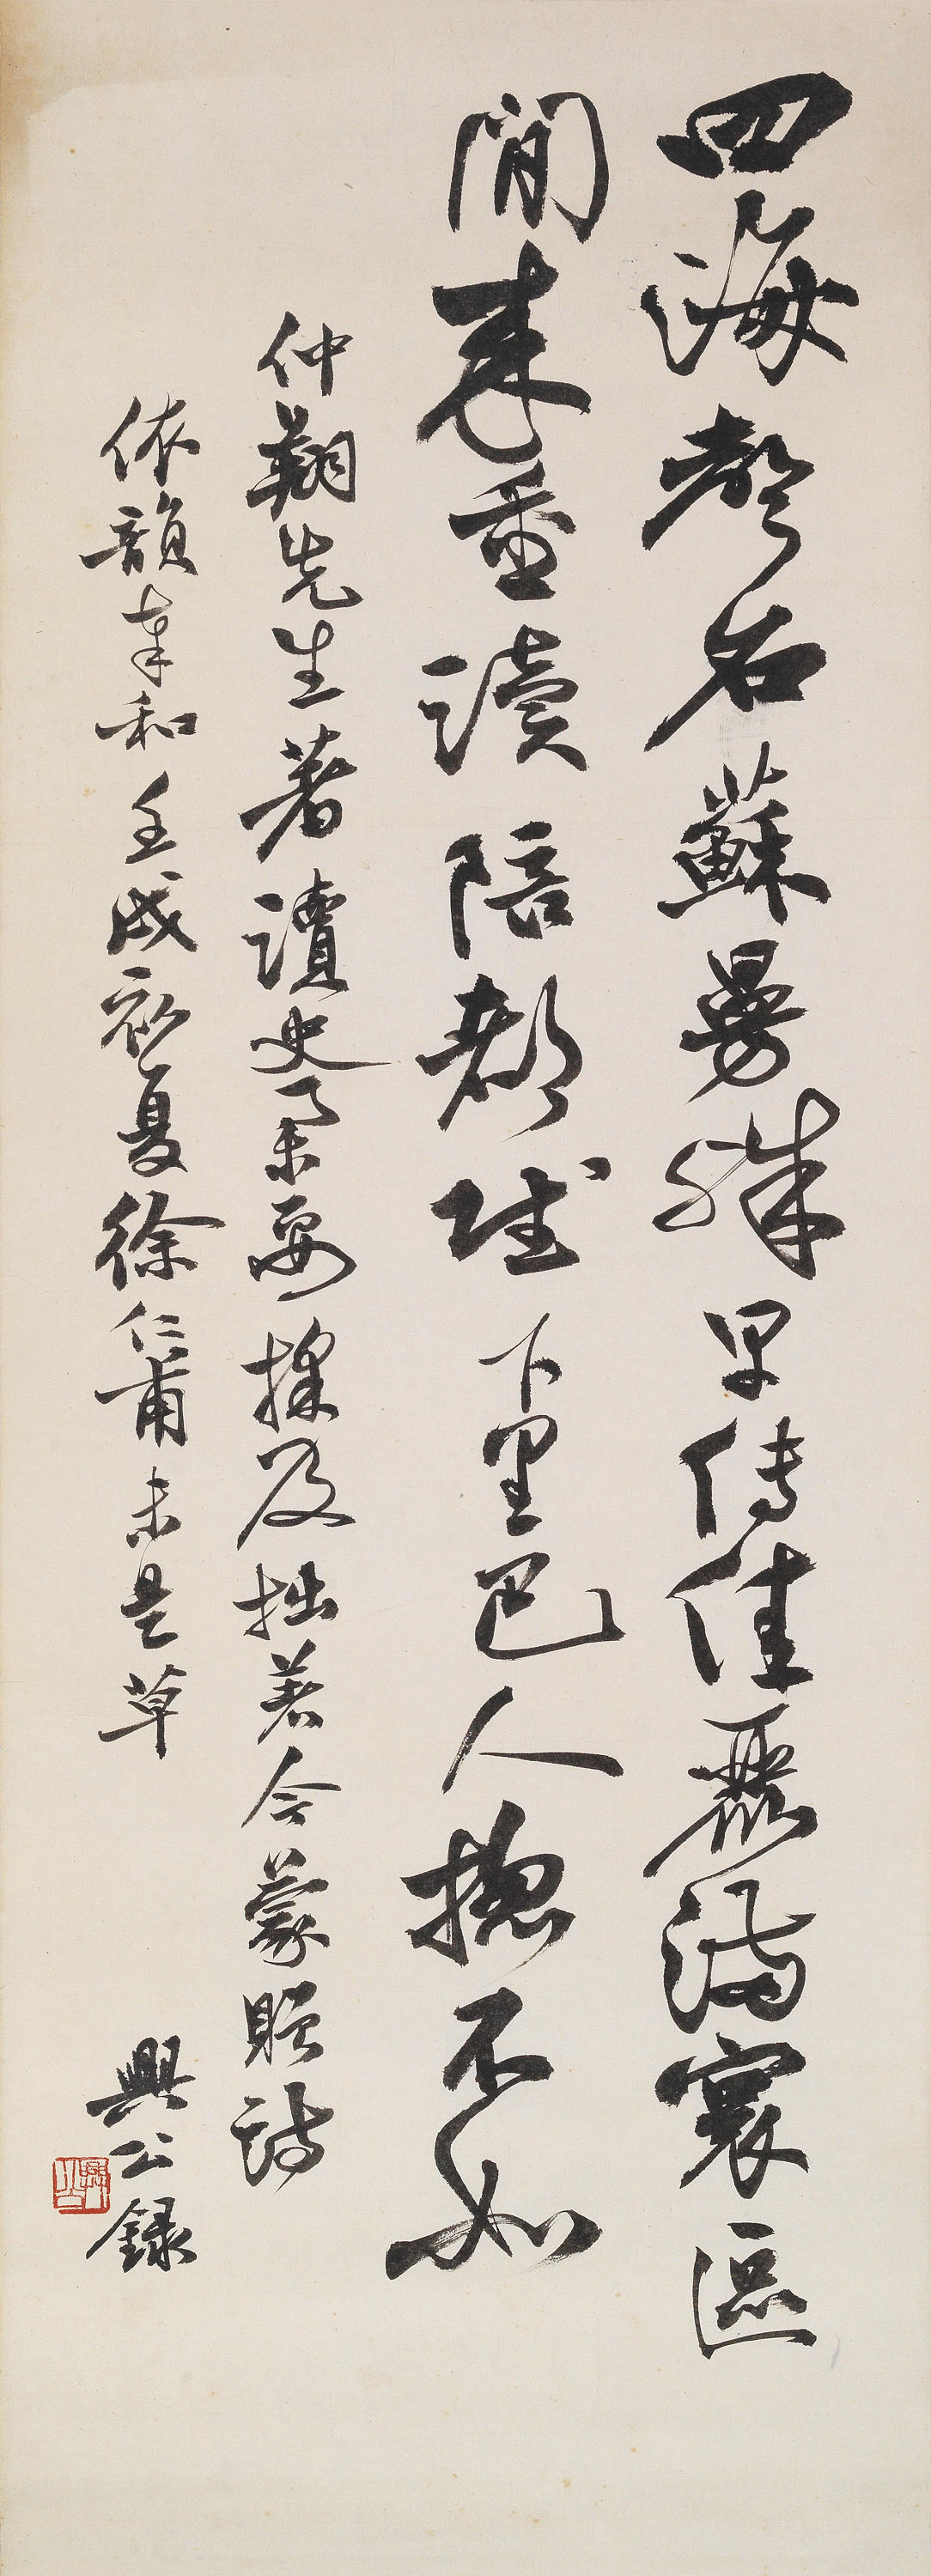 四海聲名蘇曼殊早傳佳麗滿寰區
閒來重讀陪都賦下里巴人總不如
仲翔先生著讀史要採及拙著今蒙賜詩
依韻奉和壬戌初夏徐仁甫未是草
興公錄